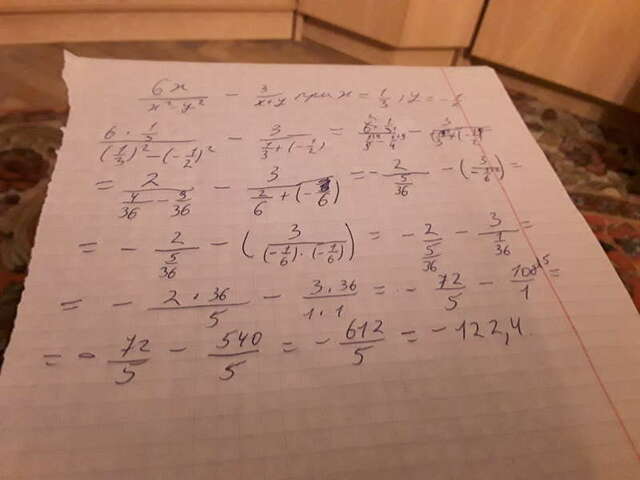 6x/(x²-y²) - 3/(x+y) при x = 1/3, y = -1/2
(6 · 1/3)/((1/3)² - (-1/2)²) - 3/(1/3 + (-1/2)) =
= 2/(4/36 - 9/36) - 3/(2/6 + (-3/6)) = - 2/(5/36) - (3/(-1/6)) =
= - 2/(5/36) - (3/((-1/6) · (-1/6))) = - 2/(5/36) - 3/(1/36) =
= - (2 · 36)/5 - (3 · 36)/(1 · 1) = - 72/5 - 108/1 ⁵ =
= - 72/5 - 540/5 = - 612/5 = - 122,4.